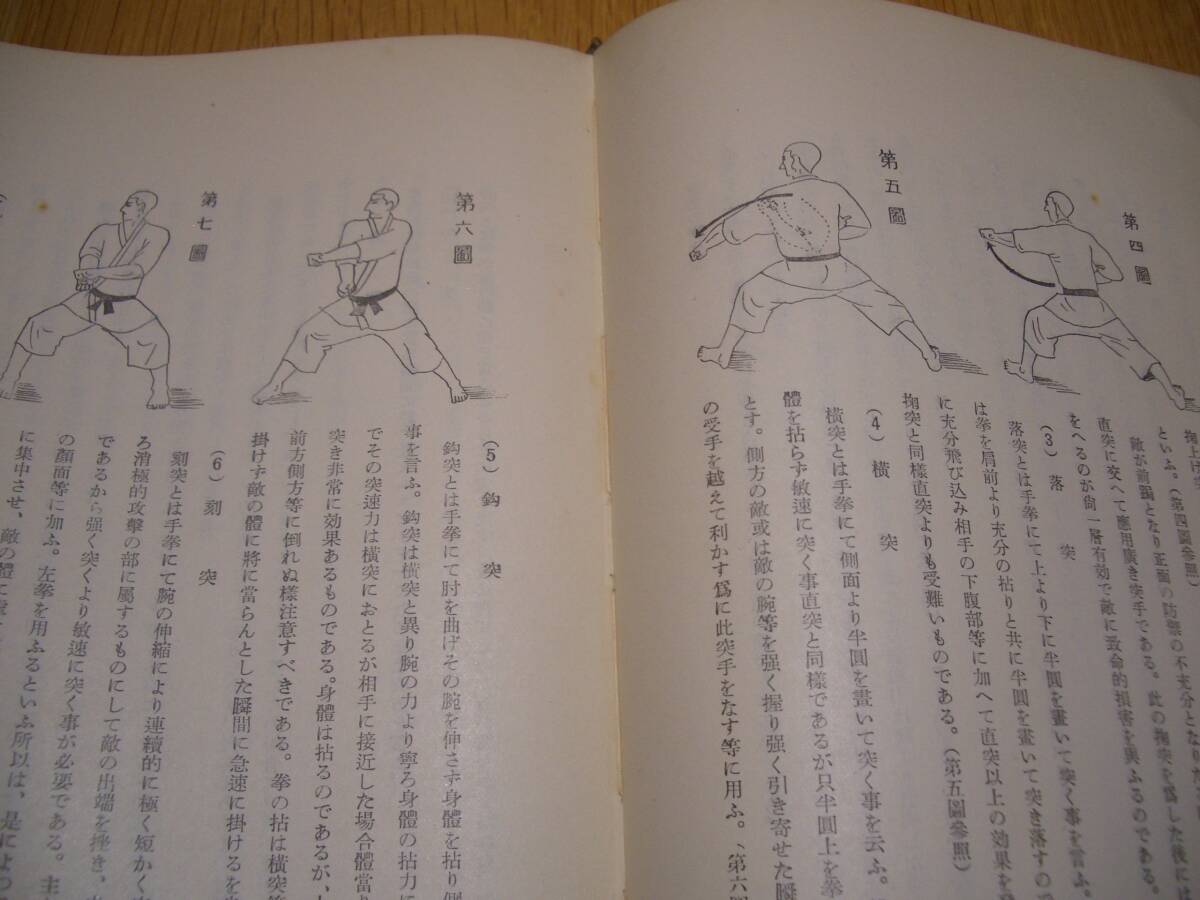 第四圖
第五圖
といふ。(第四圖參照)
敵が前蹲となり正面の防禦の不充分となり
直突に交へて應用廣き突手である。此の掬突を爲した後には
をへるのが尙一層有効で敵に致命的損害を與ふるのである。
(3) 落突
落突とは手拳にて上より下に半圓を畫いて突く事を言ふ。
は拳を肩前より充分の拈りと共に半圓を畫いて突き落すの
に充分飛び込み相手の下腹部等に加へて直突以上の効果を
掬突と同樣直突よりも受難いものである。(第五圖參照)
(4) 橫突
橫突とは手拳にて側面より半圓を畫いて突く事を云ふ。
體を拈らず敏速に突く事直突と同樣であるが只半圓上を拳
とす。側方の敵或は敵の腕等を强く握り强く引き寄せた瞬
の受手を越えて利かす爲に此突手をなす等に用ふ。(第六
第六圖
第七圖
(5) 鈎突
鈎突とは手拳にて肘を曲げその腕を伸さず身體を拈り側
事を言ふ。鈎突は橫突と異り腕の力より寧ろ身體の拈力に
でその突速力は橫突におとるが相手に接近した場合體當り
突き非常に効果あるものである。身體は拈るのであるが、
前方側方等に倒れぬ樣注意すべきである。拳の拈は橫突等
掛けず敵の體に將に當らんとした瞬間に急速に掛けるを
(6) 刻突
刻突とは手拳にて腕の伸縮により連續的に極く短かく
ろ消極的攻擊の部に屬するものにして敵の出端を挫き、
であるから强く突くより敏速に突く事が必要である。主
の顏面等に加ふ。左拳を用ふるといふ所以は、是によつ
に集中させ、敵の體に